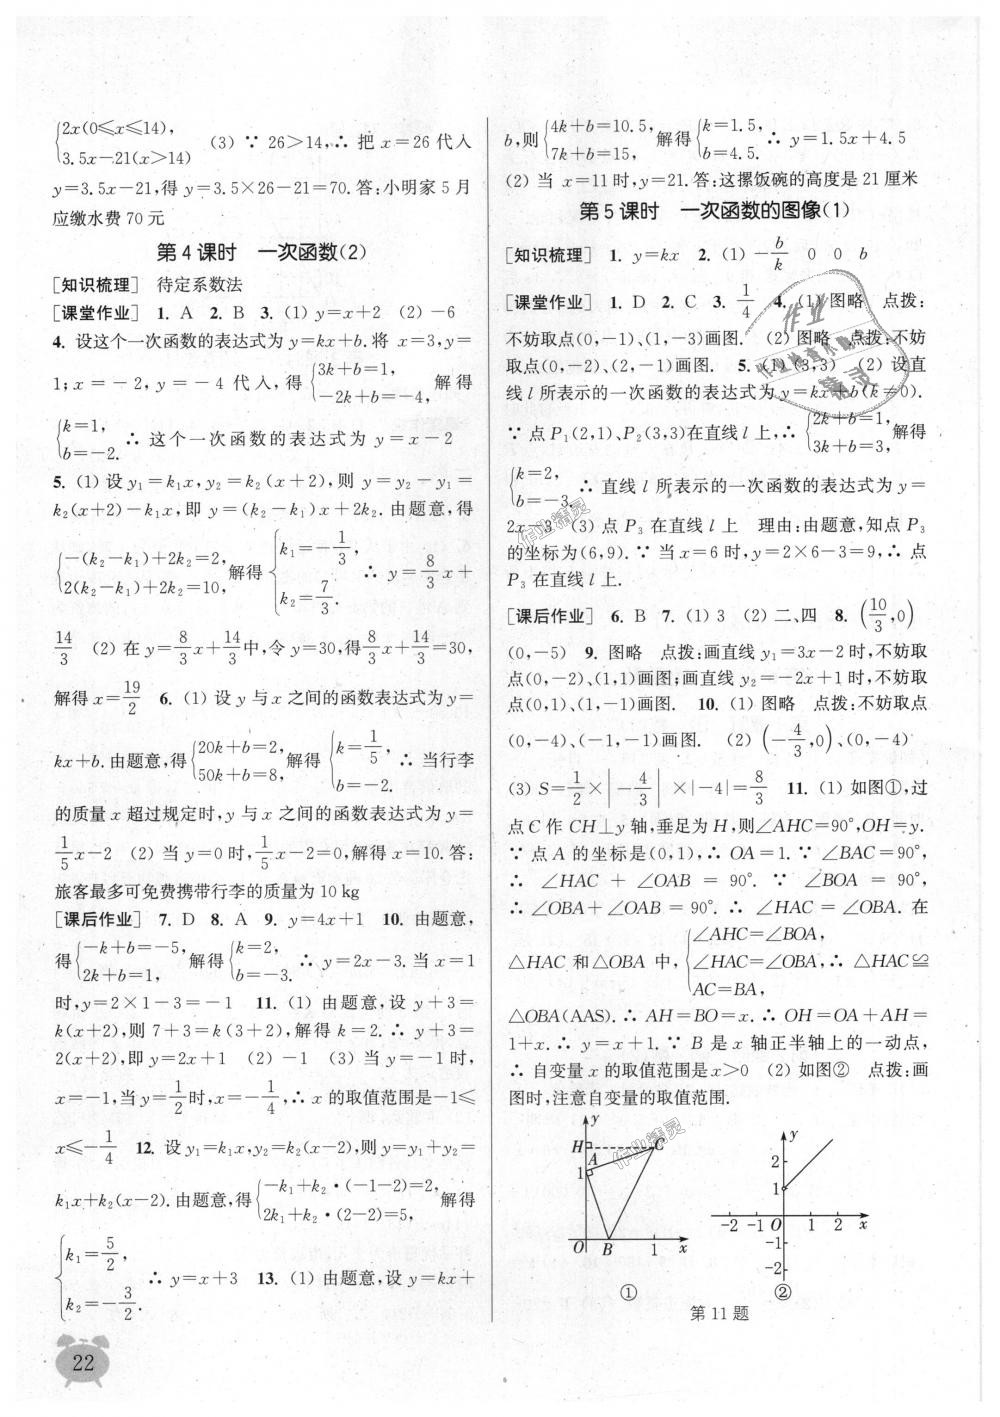 {2x(0≤x≤14), 3.5x-21(x>14) (3) ∵ 26>14,∴ 把 x=26 代入
y=3.5x-21,得 y=3.5×26-21=70.答:小明家 5 月
应缴水费 70 元
第 4 课时 一次函数(2)
[知识梳理] 待定系数法
[课堂作业] 1. A 2. B 3. (1) y=x+2 (2) -6
4. 设这个一次函数的表达式为 y=kx+b.将 x=3,y=
1;x=-2,y=-4 代入,得 {3k+b=1, -2k+b=-4, 解得
{k=1, b=-2. ∴ 这个一次函数的表达式为 y=x-2
5. (1) 设 y₁=k₁x,y₂=k₂(x+2),则 y=y₂-y₁=
k₂(x+2)-k₁x,即 y=(k₂-k₁)x+2k₂.由题意,得
{-(k₂-k₁)+2k₂=2, 2(k₂-k₁)+2k₂=10, 解得 {k₁=-1/3, k₂=7/3. ∴ y=8/3x+
14/3 (2) 在 y=8/3x+14/3中,令 y=30,得8/3x+14/3=30,
解得 x=19/2 6. (1) 设 y 与 x 之间的函数表达式为 y=
kx+b.由题意,得 {20k+b=2, 50k+b=8, 解得 {k=1/5, b=-2. ∴ 当行李
的质量 x 超过规定时,y 与 x 之间的函数表达式为 y=
1/5x-2 (2) 当 y=0 时,1/5x-2=0,解得 x=10.答:
旅客最多可免费携带行李的质量为 10 kg
[课后作业] 7. D 8. A 9. y=4x+1 10. 由题意,
得 {-k+b=-5, 2k+b=1, 解得 {k=2, b=-3. ∴ y=2x-3.当 x=1
时,y=2×1-3=-1 11. (1) 由题意,设 y+3=
k(x+2),则 7+3=k(3+2),解得 k=2.∴ y+3=
2(x+2),即 y=2x+1 (2) -1 (3) 当 y=-1 时,
x=-1,当 y=1/2时,x=-1/4,∴ x 的取值范围是-1≤
x≤-1/4 12. 设 y₁=k₁x,y₂=k₂(x-2),则 y=y₁+y₂=
k₁x+k₂(x-2).由题意,得 {-k₁+k₂·(-1-2)=2, 2k₁+k₂·(2-2)=5, 解得
{k₁=5/2, k₂=-3/2. ∴ y=x+3 13. (1) 由题意,设 y=kx+
22
b,则 {4k+b=10.5, 7k+b=15, 解得 {k=1.5, b=4.5. ∴ y=1.5x+4.5
(2) 当 x=11 时,y=21.答:这摞饭碗的高度是 21 厘米
第 5 课时 一次函数的图像(1)
[知识梳理] 1. y=kx 2. (1) -b/k 0 0 b
[课堂作业] 1. D 2. C 3. 1/4 4. (1) 图略 点拨:
不妨取点(0,-1)、(1,-3)画图. (2) 图略 点拨:不妨
取点(0,-2)、(2,-1)画图. 5. (1) (3,3) (2) 设直
线 l 所表示的一次函数的表达式为 y=kx+b(k≠0).
∵ 点 P₁(2,1)、P₂(3,3)在直线 l 上,∴ {2k+b=1, 3k+b=3, 解得
{k=2, b=-3, ∴ 直线 l 所表示的一次函数的表达式为 y=
2x-3 (3) 点 P₃ 在直线 l 上 理由:由题意,知点 P₃
的坐标为(6,9).∵ 当 x=6 时,y=2×6-3=9,∴ 点
P₃ 在直线 l 上.
[课后作业] 6. B 7. (1) 3 (2) 二、四 8. (10/3,0)
(0,-5) 9. 图略 点拨:画直线 y₁=3x-2 时,不妨取
点(0,-2)、(1,1)画图;画直线 y₂=-2x+1 时,不妨取
点(0,1)、(1,-1)画图. 10. (1) 图略 点拨:不妨取点
(0,-4)、(-1,-1)画图. (2) (-4/3,0)、(0,-4)
(3) S=1/2×|-4/3|×|-4|=8/3 11. (1) 如图①,过
点 C 作 CH⊥y 轴,垂足为 H,则∠AHC=90°,OH=y.
∵ 点 A 的坐标是(0,1),∴ OA=1.∵ ∠BAC=90°,
∴ ∠HAC+∠OAB=90°. ∵ ∠BOA=90°,
∴ ∠OBA+∠OAB=90°. ∴ ∠HAC=∠OBA. 在
△HAC 和△OBA 中, {∠AHC=∠BOA, ∠HAC=∠OBA, AC=BA, ∴ △HAC≌
△OBA(AAS).∴ AH=BO=x.∴ OH=OA+AH=
1+x.∴ y=x+1.∵ B 是 x 轴正半轴上的一动点,
∴ 自变量 x 的取值范围是 x>0 (2) 如图② 点拨:画
图时,注意自变量的取值范围.
y
H C
A
1
O B 1 x
①
y
2
1
-2 -1 O 1 2 x
-1
-2
②
第 11 题
作业精灵
作业精灵
作业
精灵